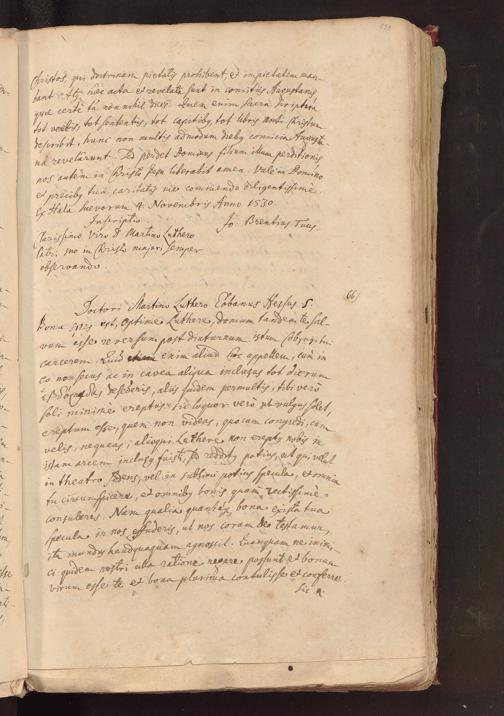 Christos, qui doctrinam pietatis prohibent, et impietatem man-
dant. Atq hæc acta et revelata sunt in comitiis Augustanis
quæ certe non nihil dicunt. Quem enim sacra Scriptura
tot verbis, tot sententiis, tot capitibus, tot libris Anti-Christum
describit, hunc non multis admodum diebus comicia Augusta-
na revelarunt. Sed perdet Dominus filium illum perditionis
nos autem in Christo Jesu liberabit amen. Vale in Domino
et precibus tuæ caritatis me commendo diligentissime
Ex Hala Suevorum 4. Novembris Anno 1530.
Inscriptio Jo: Brentius Tuus.
Clarissimo Viro D. Martino Luthero
patri suo in Christo majori semper
observando.
66
Doctori Martino Luthero Eobanus Hessus S.
Bona spes est, optime Luthere, domum tandem te sal-
vum esse reversum post diuturnum istum Coburgensem
carcerem. Quid enim aliud hoc appellem, cum in
eo non secus ac in cavea aliqua inclusus tot dierum
deseberis, aliis quidem permultis, tibi vero
soli minime ereptus. Sic loquor vero ut vulgus solet,
ereptum esse, quem non videas, quocum congredi, cum
velis, nequeas; alioqui Luthere non ereptus nobis in
istam arcem inclusus fuisti, sed redditus potius, ut qui velut
in theatro sedens, vel in sublimi potius specula, et omnia
tu circumspiceres, et omnibus bonis quam rectissime
consuleres. Nam qualia quantaq bona ex ista tua
specula in nos effuderis, ut nos coram Deo testamur,
ita mundus haudquaquam agnoscit. Quanquam ne inimi-
ci quidem nostri ulla ratione negare possunt et bonum
virum esse te et bona plurima contulisse et conferre.